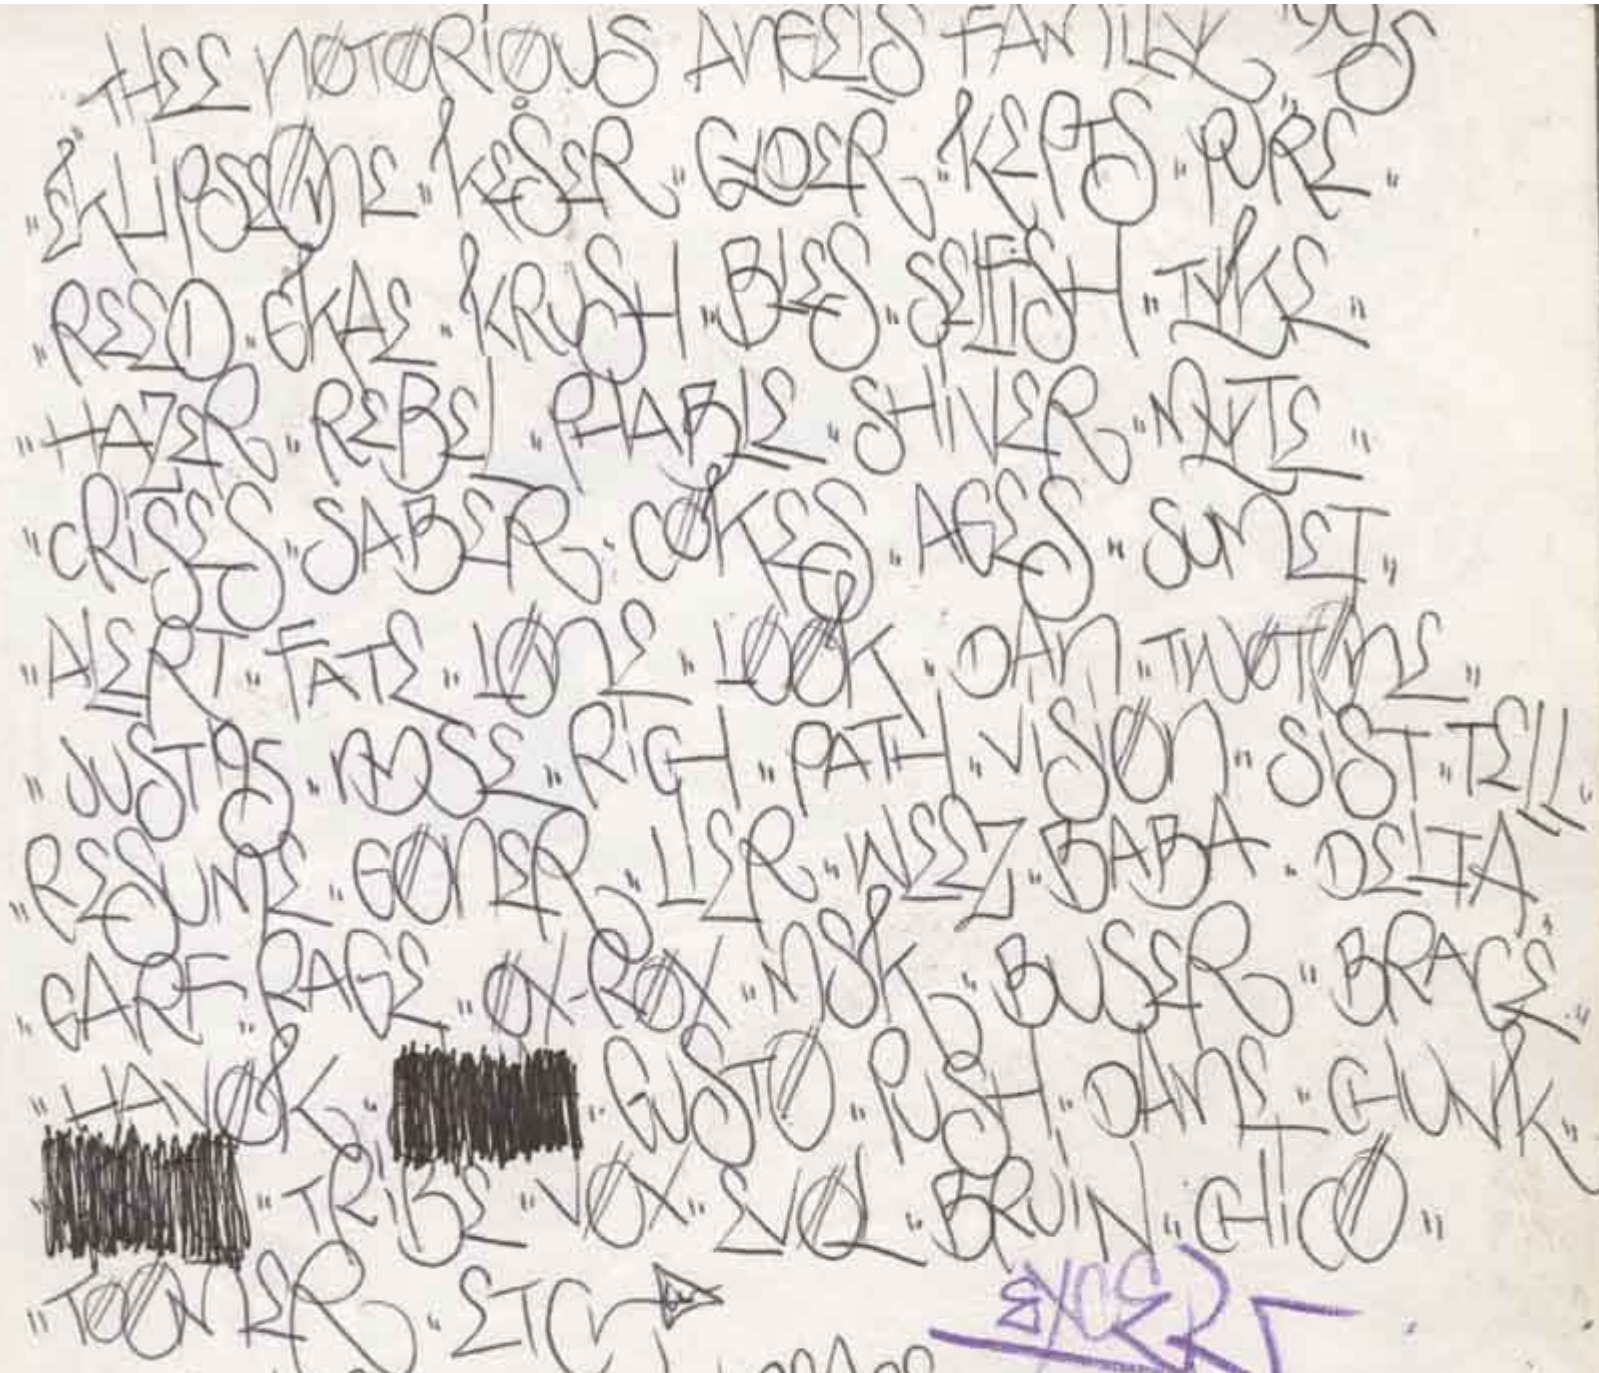 THEE NOTORIOUS ANGELS FAMILY 1995
"EKLIPSE ONE" KESER" GLOER" KEPTS" PURE"
"RESO" EKAE" KRUSH" BLES" SELFISH" TYKE"
"HAZER" REBEL" PHABLE" SHIVER" NYTE"
"CRISES" SABER" COKES" AGES" SUMET"
"ALERT" FATE" LONE" LOOK" DAM" TWOTONE"
"JUST195" NOSE" RICH" PATH" VISION" SIST" TELL"
RESUME" GONER" LIER" WEEZ" BABA" DELTA"
"EARF" RAGE" OX-ROX" MSK" BUSER" BRACE"
"HAVOK" GUSTO" PUSH" DAME" CHUNK"
" TRIBE" VOX" EVOL" BRUIN" CHICO"
"TOOMER" ETC
EXCERT